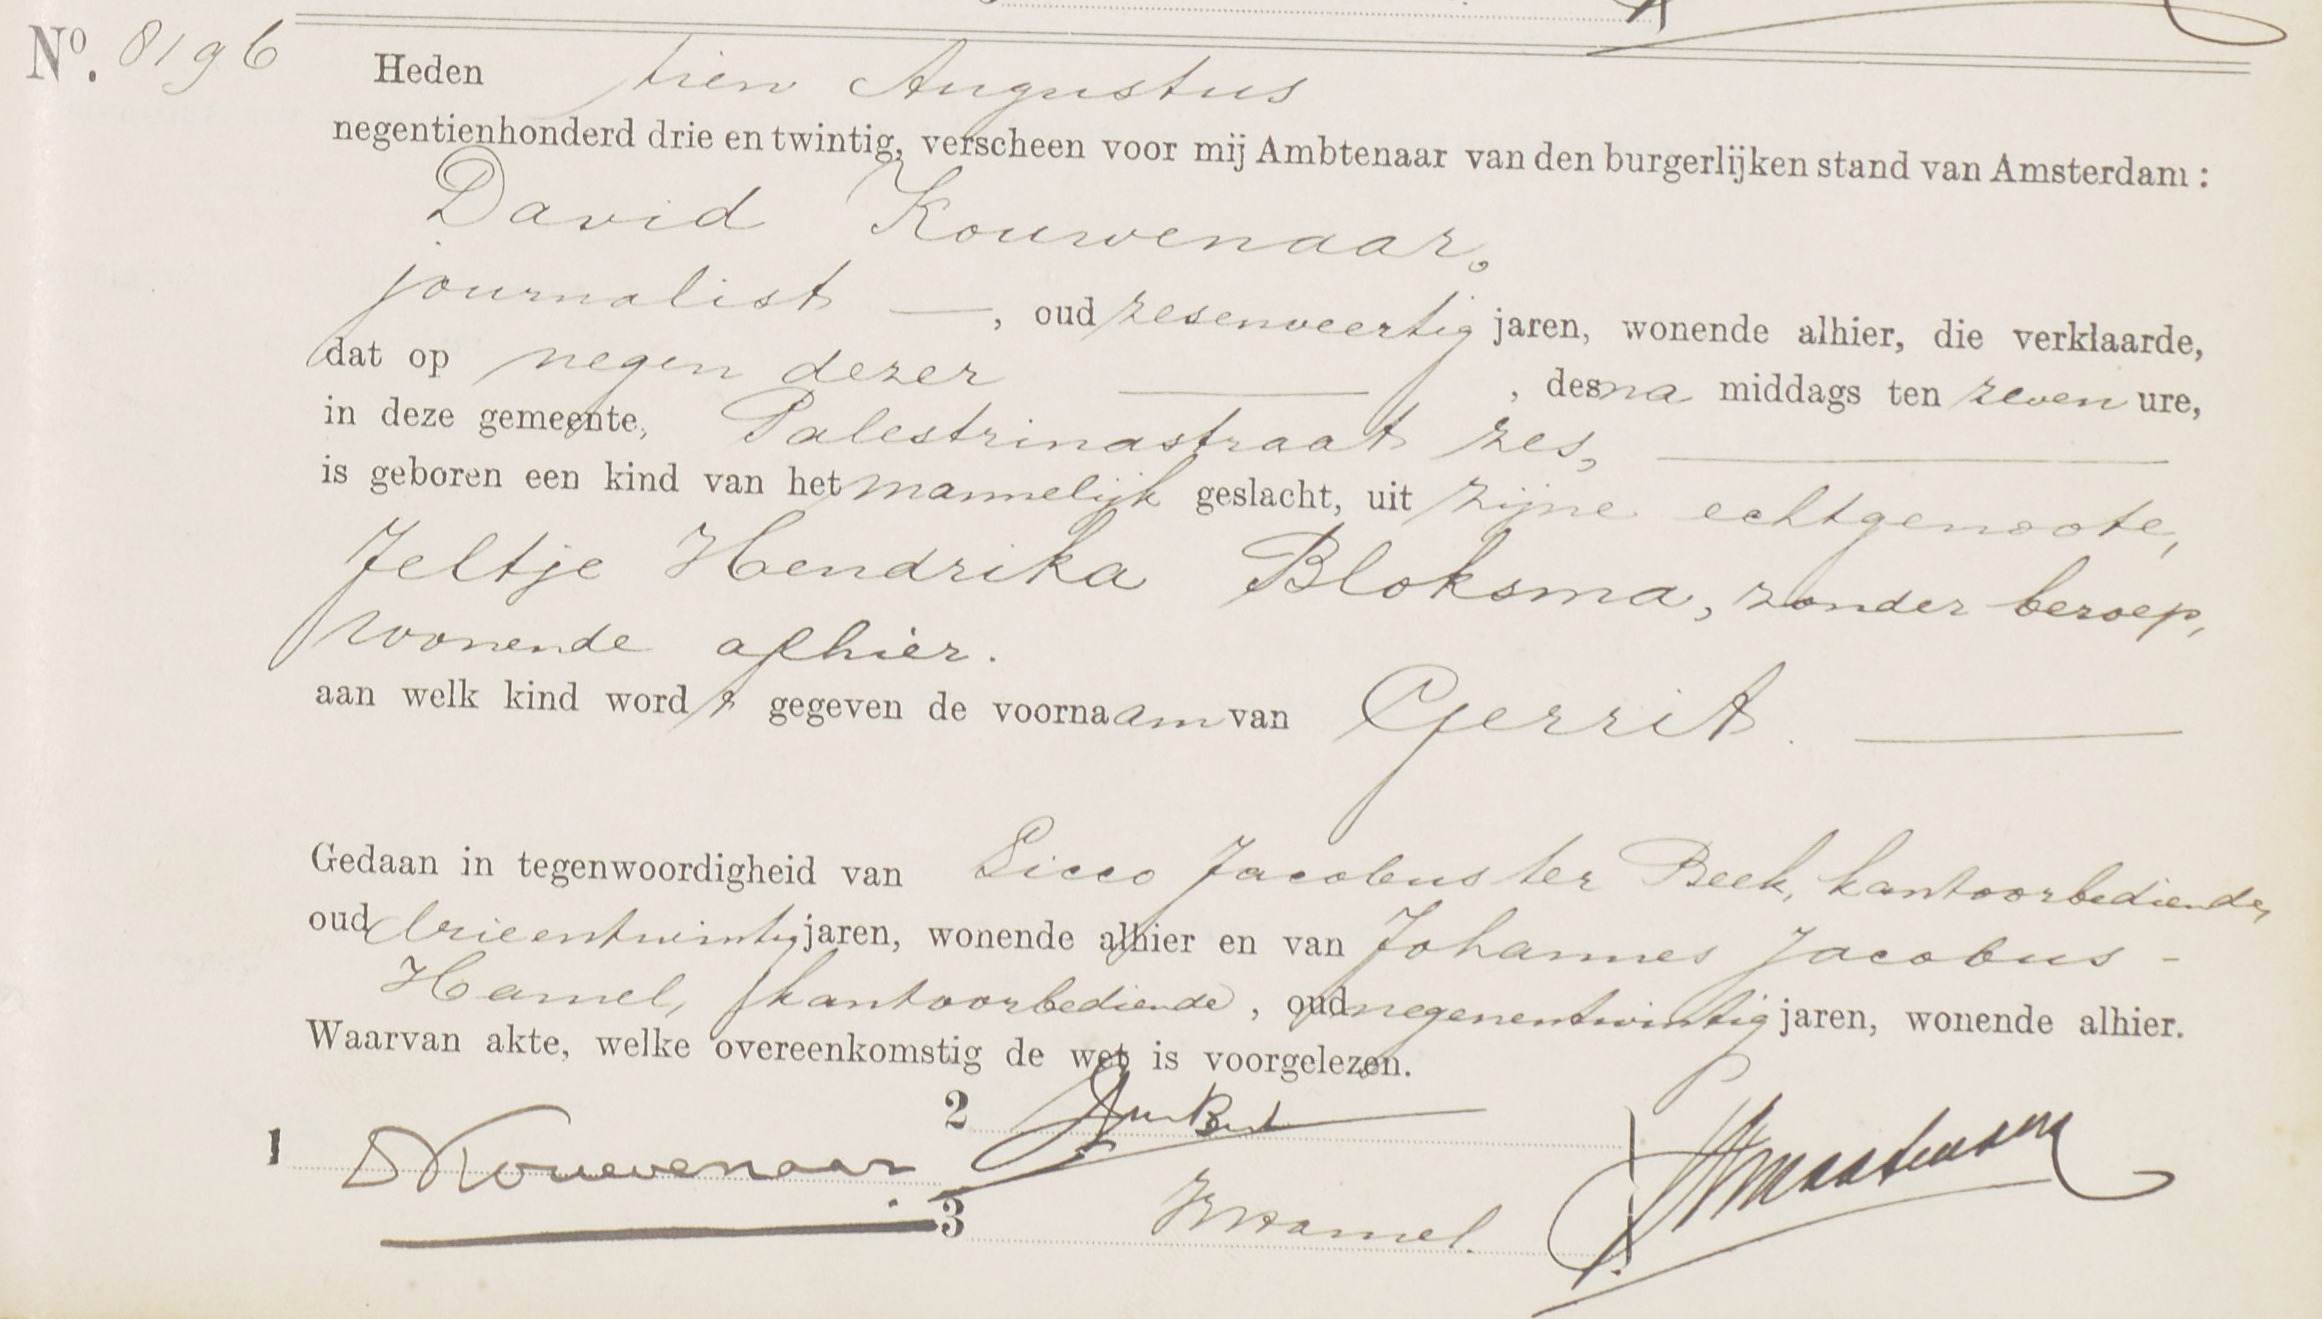 No. 8196
Heden tien Augustus
negentienhonderd drie en twintig, verscheen voor mij Ambtenaar van den burgerlijken stand van Amsterdam:
David Kouwenaar,
journalist —, oud zesenveertig jaren, wonende alhier, die verklaarde,
dat op negen dezer —, des na middags ten zeven ure,
in deze gemeente, Palestrinastraat zes, —
is geboren een kind van het mannelijk geslacht, uit zijne echtgenoote,
Jeltje Hendrika Bloksma, zonder beroep,
wonende alhier.
aan welk kind wordt gegeven de voornaam van Gerrit. —
Gedaan in tegenwoordigheid van Sicco Jacobus ter Beek, kantoorbediende,
oud drieentwintig jaren, wonende alhier en van Johannes Jacobus -
Hamel, kantoorbediende, oud negenentwintig jaren, wonende alhier.
Waarvan akte, welke overeenkomstig de wet is voorgelezen.
1 DKouwenaar.
2
3 Hamel.